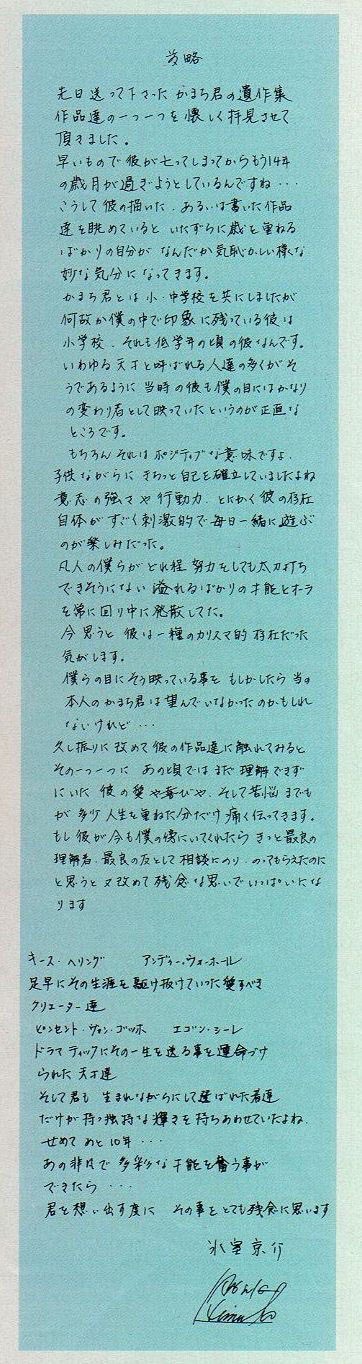 前略
先日送って下さった かまち君の遺作集
作品達の一つ一つを懐しく拝見させて
頂きました。
早いもので彼が亡ってしまってからもう14年
の歳月が過ぎようとしているんですね・・・
こうして彼の描いた、あるいは書いた作品
達を眺めていると いたずらに歳を重ねる
ばかりの自分が なんだか気恥かしい様な
妙な気分に なってきます。
かまち君とは 小・中学校を共にしましたが
何故か僕の中で印象に残っている彼は
小学校、それも低学年の頃の彼なんです。
いわゆる天才と呼ばれる人達の多くがそ
うであるように 当時の彼も僕の目にはかなり
の変わり者として映っていたというのが正直な
ところです。
もちろん それは ポジティブな意味ですよ、
子供ながらに きちっと自己を確立していましたよね
意志の強さや行動力、とにかく彼の存在
自体が すごく刺激的で毎日一緒に遊ぶ
のが楽しみだった。
凡人の僕らがどれ程 努力をしても太刀打ち
できそうにない 溢れるばかりの才能とオーラ
を常に回り中に発散してた。
今思うと 彼は一種のカリスマ的存在だった
気がします。
僕らの目にそう映っている事を もしかしたら 当の
本人のかまち君は望んでいなかったのかもしれ
ないけれど・・・
久し振りに改めて彼の作品達に触れてみると
その一つ一つに あの頃ではまだ理解できず
にいた 彼の愛や喜びや、そして苦悩までも
が 多少人生を重ねた分だけ 痛く伝ってきます。
もし彼が今も僕の傍にいてくれたら きっと最良の
理解者、最良の友として相談にのり、のってもらえたのに
と思うと 又改めて残念な思いでいっぱいにな
ります
キース・ヘリング アンディー・ウォーホール
足早にその生涯を駆け抜けていった愛すべき
クリエーター達
ビンセント・ヴァン・ゴッホ エゴン・シーレ
ドラマティックにその一生を送る事を運命づけ
られた天才達
そして君も 生まれながらにして選ばれた若者
だけが持つ独特な輝きを持ちあわせていたよね、
せめて あと10年・・・
あの非凡で 多彩な才能を奮う事が
できたら・・・
君を想い出す度に その事をとても残念に思います
氷室京介